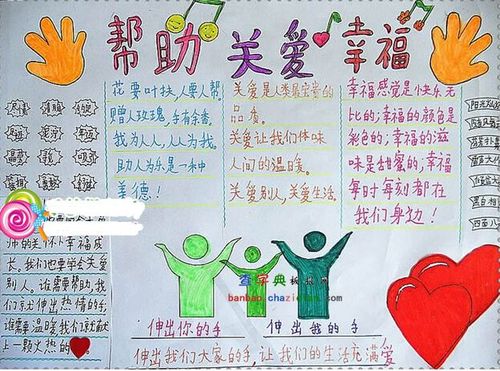 帮助 关爱 幸福
花要叶扶,人要人帮
赠人玫瑰,手有余香
我为人人,人人为我。
助人为乐是一种
美德!
关爱是人类最宝贵的
品质。
关爱让我们体味
人间的温暖。
关爱别人,关爱生活。
幸福感觉是快乐无
比的;幸福的颜色是
彩色的;幸福的滋
味是甜蜜的;幸福
每时每刻都在
我们身边!
师的关怀下幸福成
长。我们也要学会关爱
别人。谁需要帮助,我
们就伸出热情的手;
谁需要温暖我们就献
上一颗火热的
查字典
banbao.chazidian.com
伸出你的手 伸出我的手
伸出我们大家的手,让我们的生活充满爱